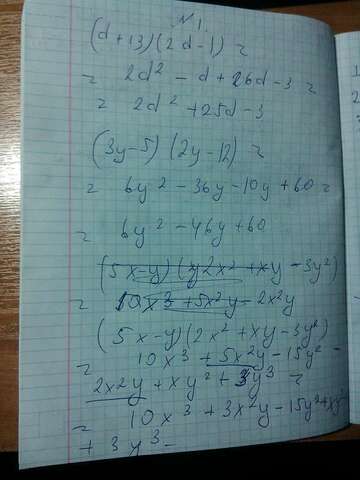 №1.
(d+13)(2d-1) =
= 2d² - d + 26d - 3 =
= 2d² + 25d - 3
(3y-5)(2y-12) =
= 6y² - 36y - 10y + 60 =
= 6y² - 46y + 60
(5x-y)(2x² + xy - 3y²)
= 10x³ + 5x²y - 2x²y
(5x-y)(2x² + xy - 3y²)
= 10x³ + 5x²y - 15y² -
2x2y + xy² + 3y³ =
= 10x³ + 3x²y - 15y² + xy²
+ 3y³ -